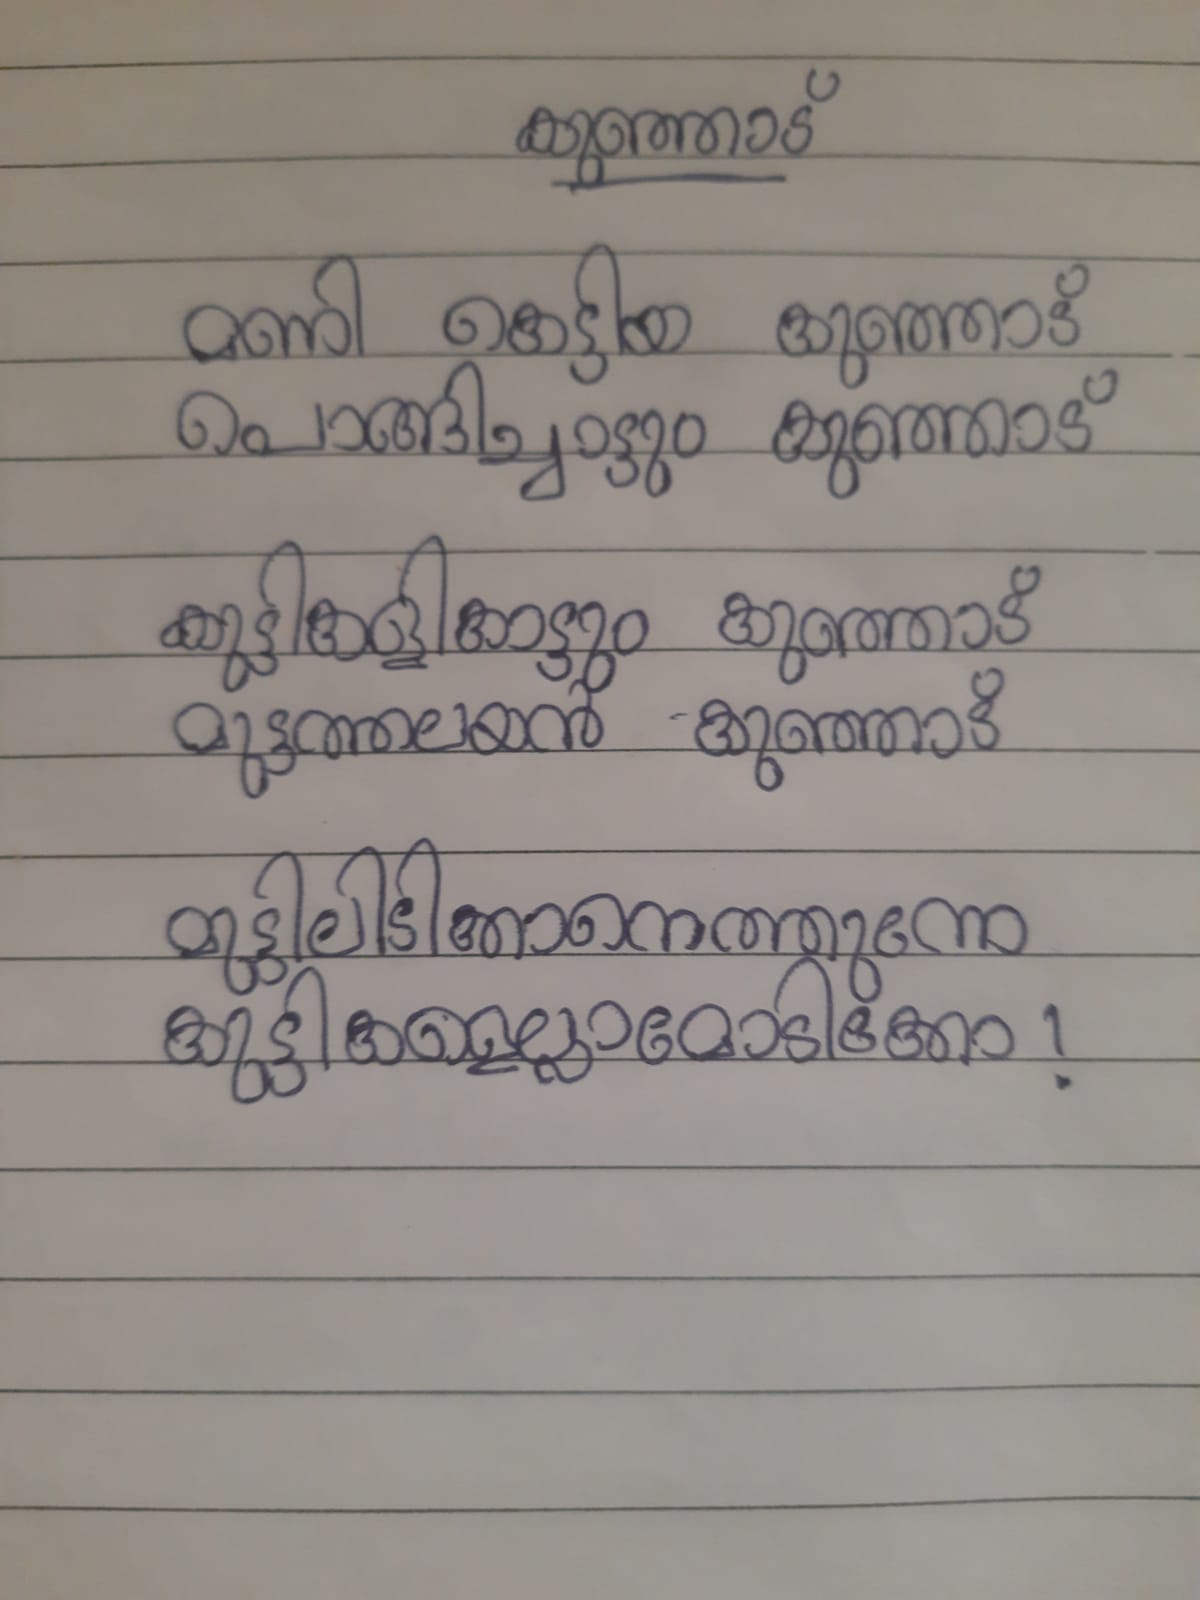 കുഞ്ഞാട്
മണി കെട്ടിയ കുഞ്ഞാട്
പൊങ്ങിച്ചാട്ടും കുഞ്ഞാട്
കുട്ടികളികാട്ടും കുഞ്ഞാട്
മുട്ടത്തലയൻ കുഞ്ഞാട്
മുട്ടിലിടിക്കാനെത്തുന്നേ
കുട്ടികളെല്ലാമോടിക്കോ!